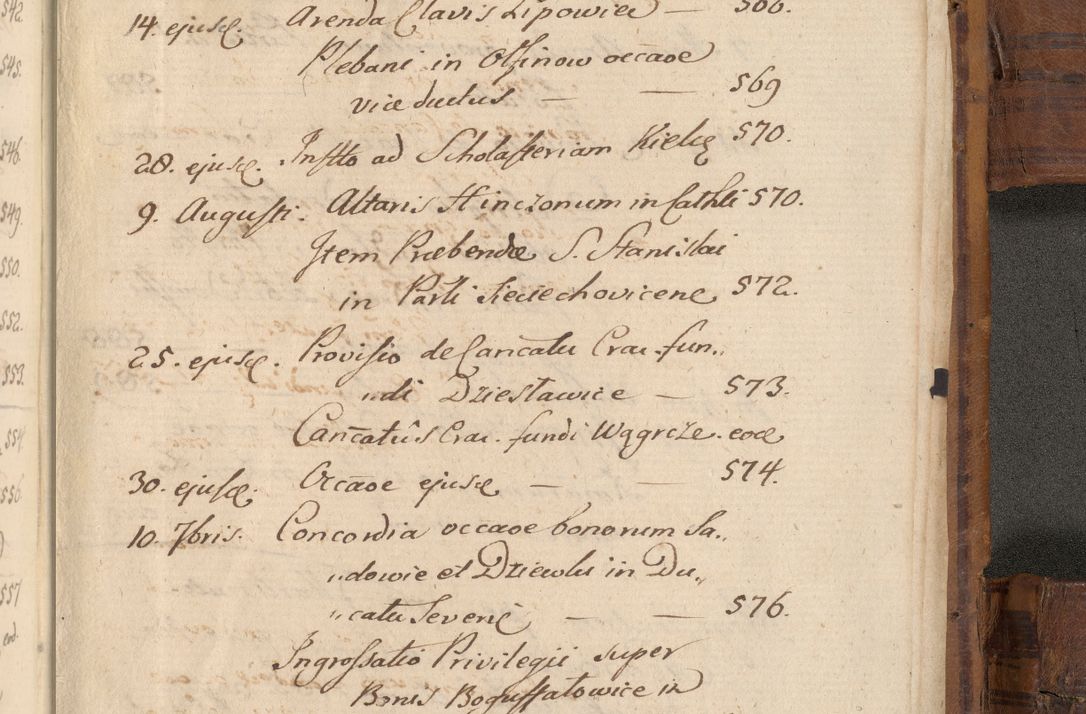 542.
545.
546.
549.
550.
552.
553.
554.
556.
557
eod.
14. ejusd. Arenda Clavis Lipowiec — 566.
Plebani in Olfinow occãoe
vice ductus — — 569
28. ejusd. Instto ad Scholasteriam Kielc 570.
9. Augusti. Altaris Hinczonum in Cathli 570.
Item Præbendæ S. Stanislai
in Parli Sieciechovicene 572.
25. ejusd. Provisio de Cancatu Crac. fun„
„di Dziesławice — 573.
Cancatûs Crac. fundi Wągrcze. eod
30. ejusd. Occãoe ejusd — — 574.
10. 7bris. Concordia occãoe bonorum Sa„
„dowie et Dziewki in Du„
„catu Severiē — — 576.
Ingrossatio Privilegii super
Bonis Bogussatowice in